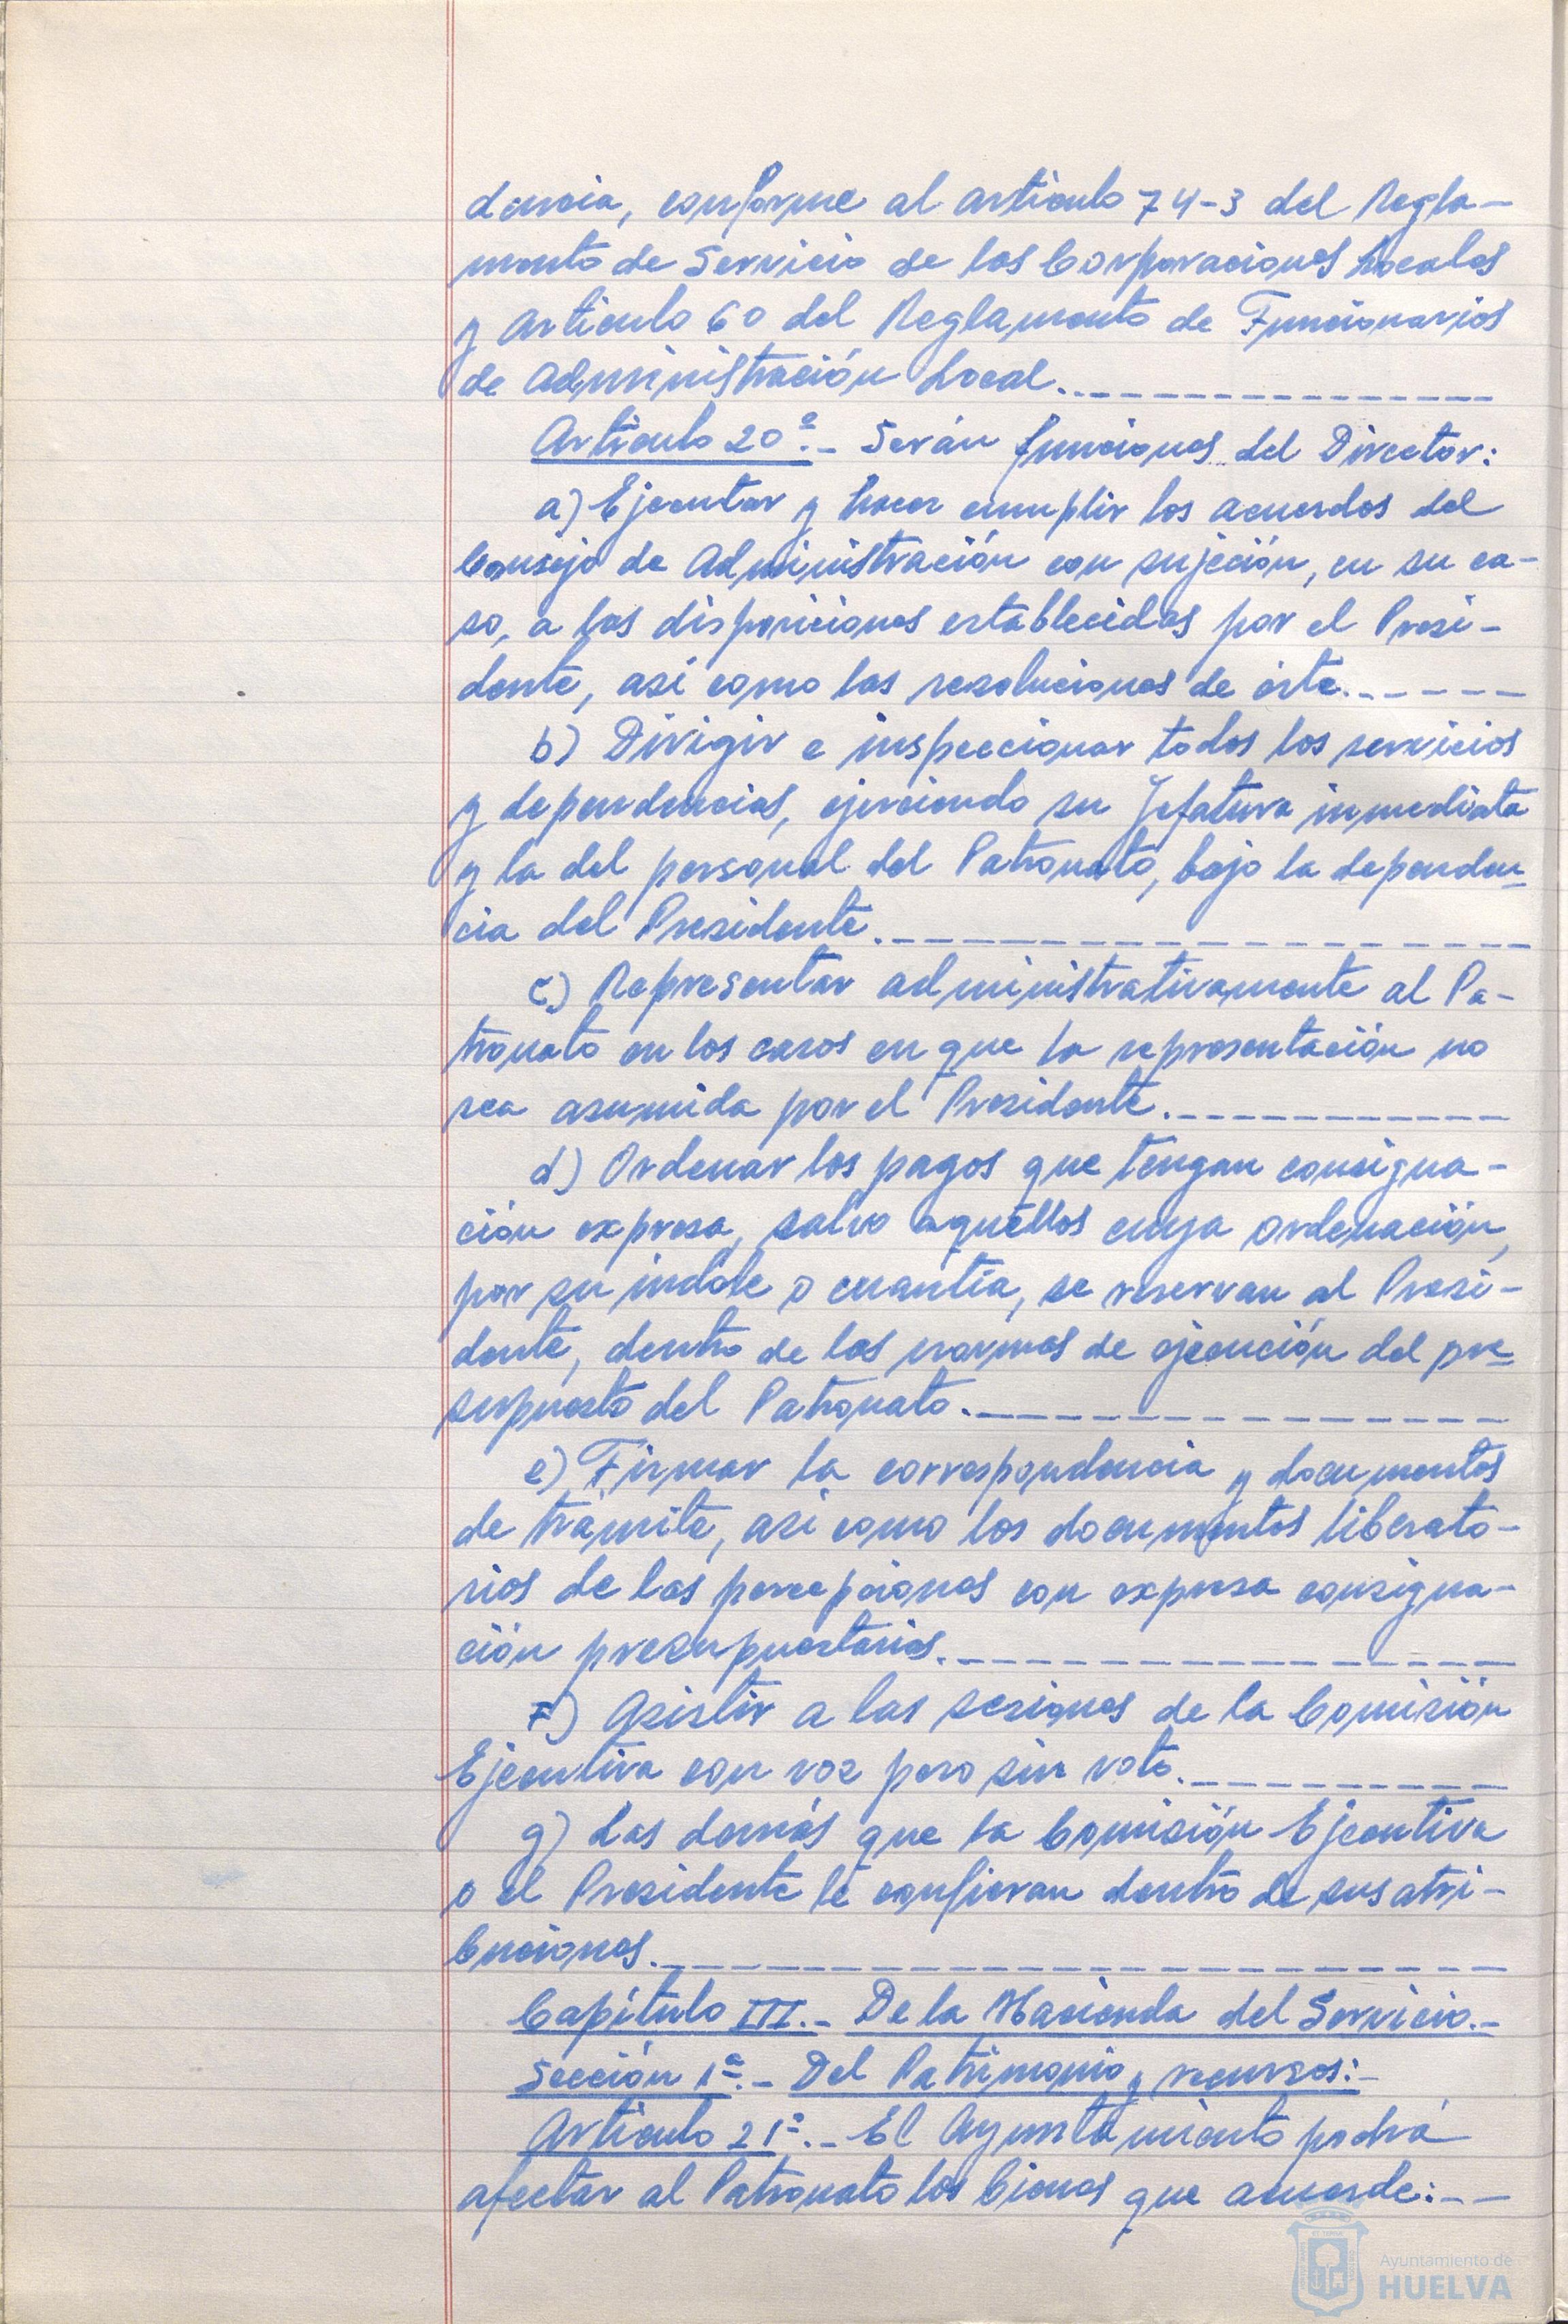 dencia, conforme al artículo 74-3 del Regla-
mento de Servicio de las Corporaciones Locales
y artículo 60 del Reglamento de Funcionarios
de Administración Local.
Artículo 20º.- Serán funciones del Director:
a) Ejecutar y hacer cumplir los acuerdos del
Consejo de Administración con sujeción, en su ca-
so, a las disposiciones establecidas por el Presi-
dente, así como las resoluciones de éste.
b) Dirigir e inspeccionar todos los servicios
y dependencias, ejerciendo su Jefatura inmediata
y la del personal del Patronato, bajo la dependen-
cia del Presidente.
c) Representar administrativamente al Pa-
tronato en los casos en que la representación no
sea asumida por el Presidente.
d) Ordenar los pagos que tengan consigna-
ción expresa, salvo aquéllos cuya ordenación,
por su indole o cuantía, se reservan al Presi-
dente, dentro de las normas de ejecución del pre-
supuesto del Patronato.
e) Firmar la correspondencia y documentos
de trámite, así como los documentos liberato-
rios de las percepciones con expresa consigna-
ción presupuestarias.
F) Asistir a las sesiones de la Comisión
Ejecutiva con voz pero sin voto.
g) Las demás que la Comisión Ejecutiva
o el Presidente le confieran dentro de sus atri-
buciones.
Capítulo III.- De la Hacienda del Servicio.-
Sección 1ª.- Del Patrimonio y recursos:-
Artículo 21º.- El Ayuntamiento podrá
afectar al Patronato los bienes que acuerde:--
Ayuntamiento de
HUELVA